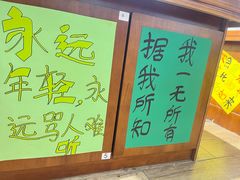 永远
年轻,永
远骂人难
听
5
据我所知
我一无所有